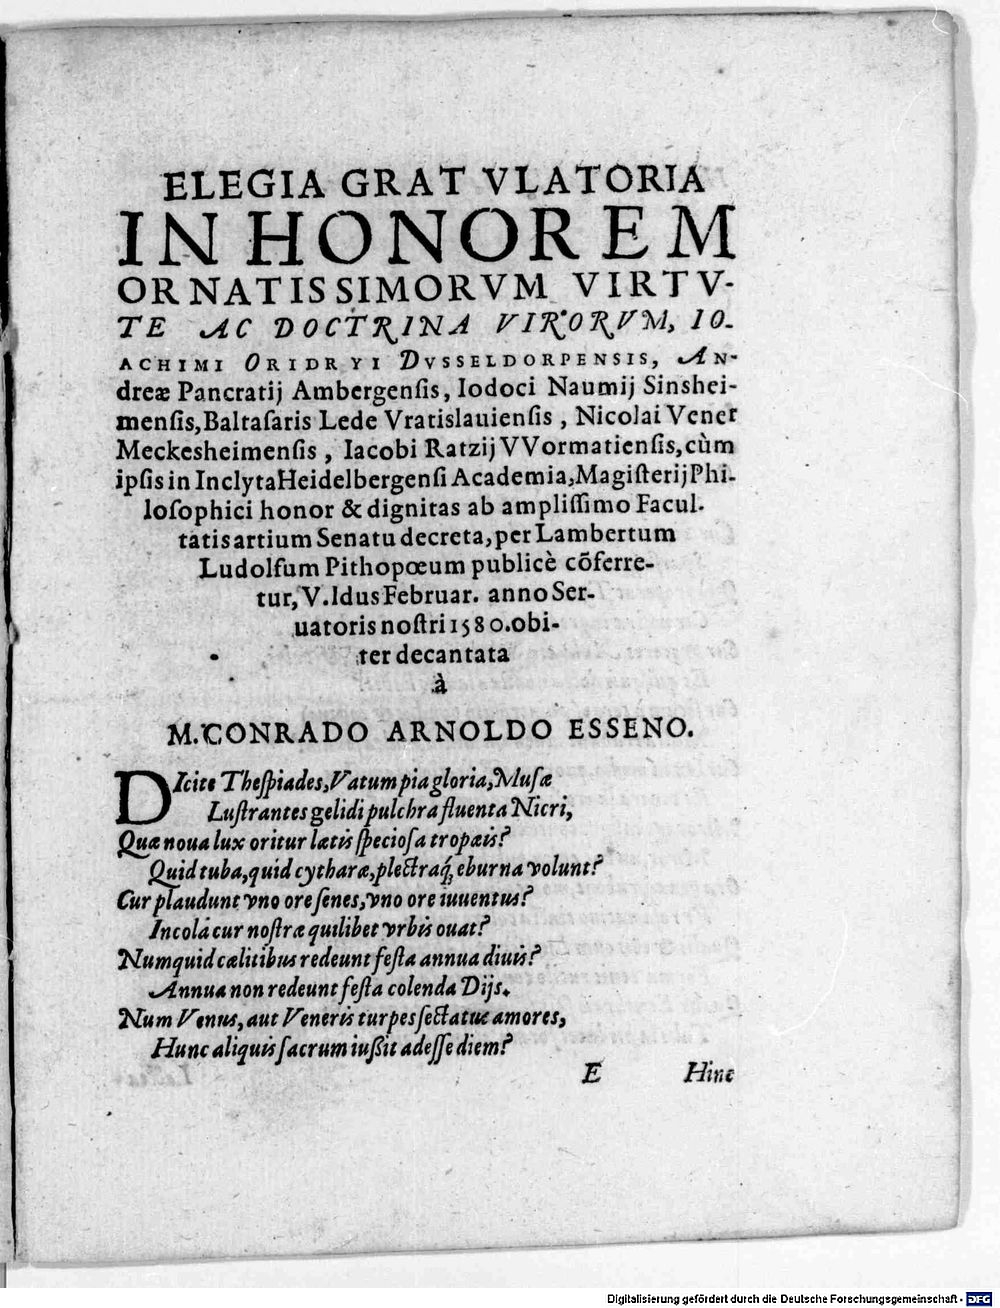 ELEGIA GRATVLATORIA
IN HONOREM
ORNATISSIMORVM VIRTV-
TE AC DOCTRINA VIRORVM, IO-
ACHIMI ORIDRYI DVSSELDORPENSIS, AN-
dreæ Pancratij Ambergenſis, Iodoci Naumij Sinshei-
menſis, Baltaſaris Lede Vratislauienſis, Nicolai Vener
Meckesheimenſis, Iacobi Ratzij VVormatienſis, cùm
ipſis in Inclyta Heidelbergenſi Academia, Magiſterij Phi-
loſophici honor & dignitas ab ampliſſimo Facul-
tatis artium Senatu decreta, per Lambertum
Ludolfum Pithopœum publicè cōferre-
tur, V. Idus Februar. anno Ser-
uatoris noſtri 1580. obi-
ter decantata
à
M. CONRADO ARNOLDO ESSENO.
DIcite Theſpiades, Vatum pia gloria, Muſæ
Luſtrantes gelidi pulchra fluenta Nicri,
Quæ noua lux oritur lætis ſpecioſa tropæis?
Quid tuba, quid cytharæ, plectraq́; eburna volunt?
Cur plaudunt vno ore ſenes, vno ore iuuentus?
Incola cur noſtræ quilibet vrbis ouat?
Numquid cælitibus redeunt feſta annua diuis?
Annua non redeunt feſta colenda Dijs.
Num Venus, aut Veneris turpes ſectatus amores,
Hunc aliquis ſacrum iußit adeſſe diem?
E Hinc
Digitalisierung gefördert durch die Deutsche Forschungsgemeinschaft - DFG